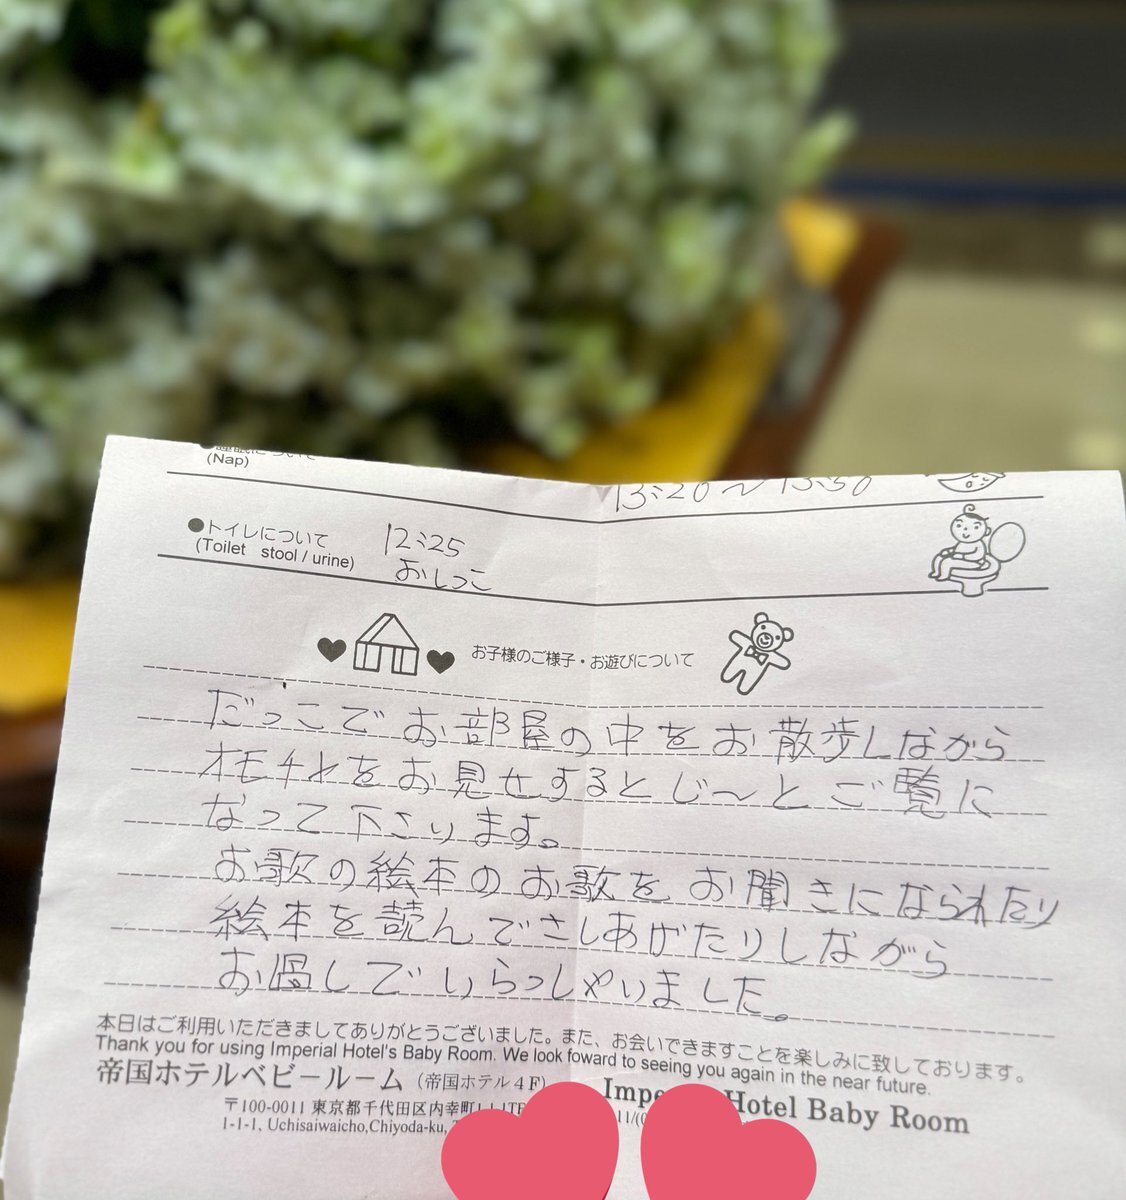 (Nap)
13:20～13:50
●トイレについて
(Toilet stool / urine)
12:25
おしっこ
お子様のご様子・お遊びについて
だっこでお部屋の中をお散歩しながら
オモチャをお見せするとじ～とご覧に
なって下さります。
お歌の絵本のお歌をお聞きになられたり
絵本を読んでさしあげたりしながら
お過しでいらっしゃいました。
本日はご利用いただきましてありがとうございました。また、お会いできますことを楽しみに致しております。
Thank you for using Imperial Hotel's Baby Room. We look foward to seeing you again in the near future.
帝国ホテルベビールーム（帝国ホテル４F）
Hotel Baby Room
〒100-0011 東京都千代田区内幸町
1-1-1, Uchisaiwaicho,Chiyoda-ku,